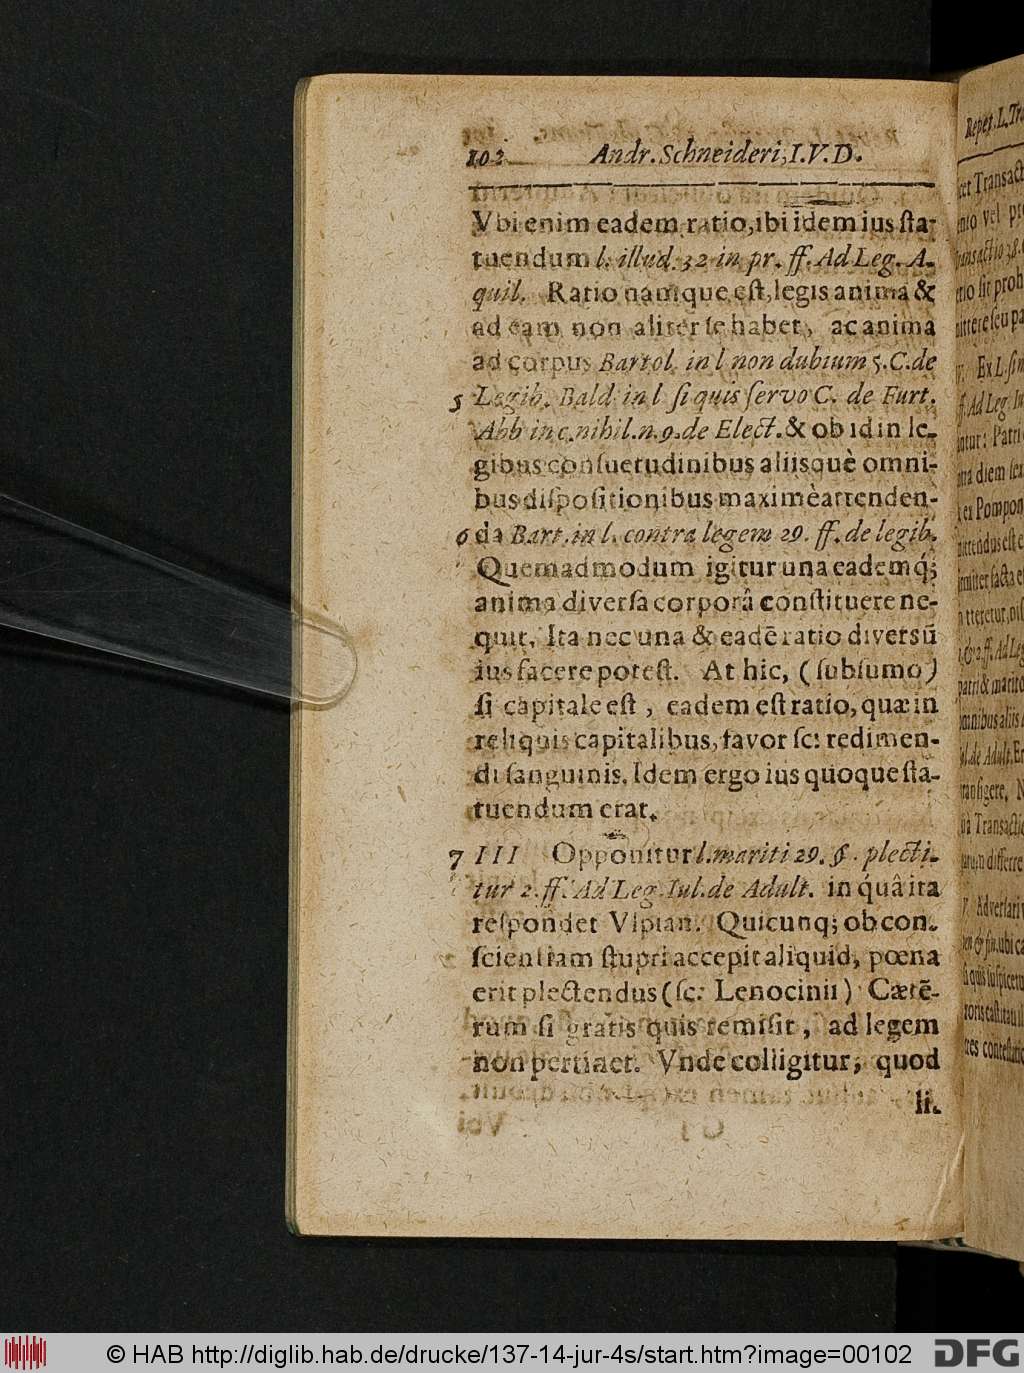 102 Andr. Schneideri, I.V.D.
Vbi enim eadem ratio, ibi idem ius ſta-
tuendum l. illud. 32 in pr. ff. Ad Leg. A-
quil. Ratio namque eſt, legis anima &
ad eam non aliter ſe habet, ac anima
ad corpus Bartol. in l non dubium 5. C. de
5 Legib. Bald in l ſi quis ſervo C. de Furt.
Abb in c. nihil. n. 9. de Elect. & ob id in le-
gibus conſuetudinibus aliisquè omni-
bus diſpoſitionibus maximè attenden-
6 da Bart. in l. contra legem 29. ff. de legib.
Quemadmodum igitur una eademq́;
anima diverſa corporâ conſtituere ne-
quit. Ita nec una & eadē ratio diversū
ius facere poteſt. At hic, (ſubſumo)
ſi capitale eſt, eadem eſt ratio, quæ in
reliquis capitalibus, favor ſc: redimen-
di ſanguinis. Idem ergo ius quoque ſta-
tuendum erat.
7 III Opponitur l. mariti 29. §. plecti-
tur 2. ff. Ad Leg. Iul. de Adult. in quâ ita
reſpondet Vlpian. Quicunq; ob con-
ſcientiam ſtupri accepit aliquid, pœna
erit plectendus (ſc: Lenocinii) Cæte-
rum ſi gratis quis remiſit, ad legem
non pertinet. Vnde colligitur, quod
li.
Repet. L. Tr
cet Transact
transactio 38.
Ex L. ſin
ff. Ad Leg. Iu
antur: Patri
ex Pompon
patri & marito
omnibus aliis
Transactio
Adverſari
© HAB http://diglib.hab.de/drucke/137-14-jur-4s/start.htm?image=00102
DFG